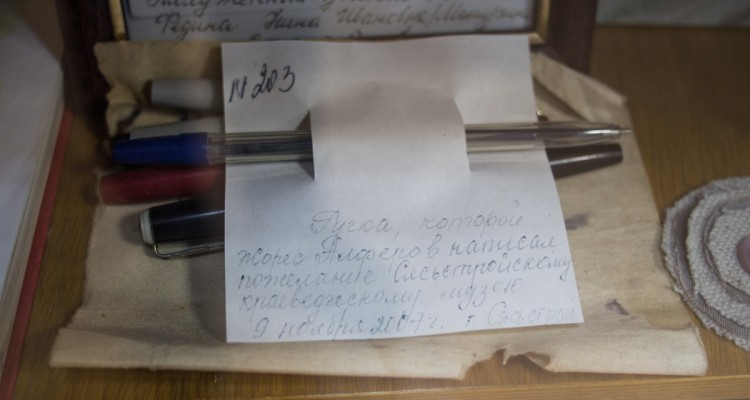 Заслуженный
Редина Нина Ивановна
N 203
Ручка, которой
Жорес Алферов написал
пожелание Сясьстройскому
краеведческому музею
9 ноября 2007 г. г Сясьстрой